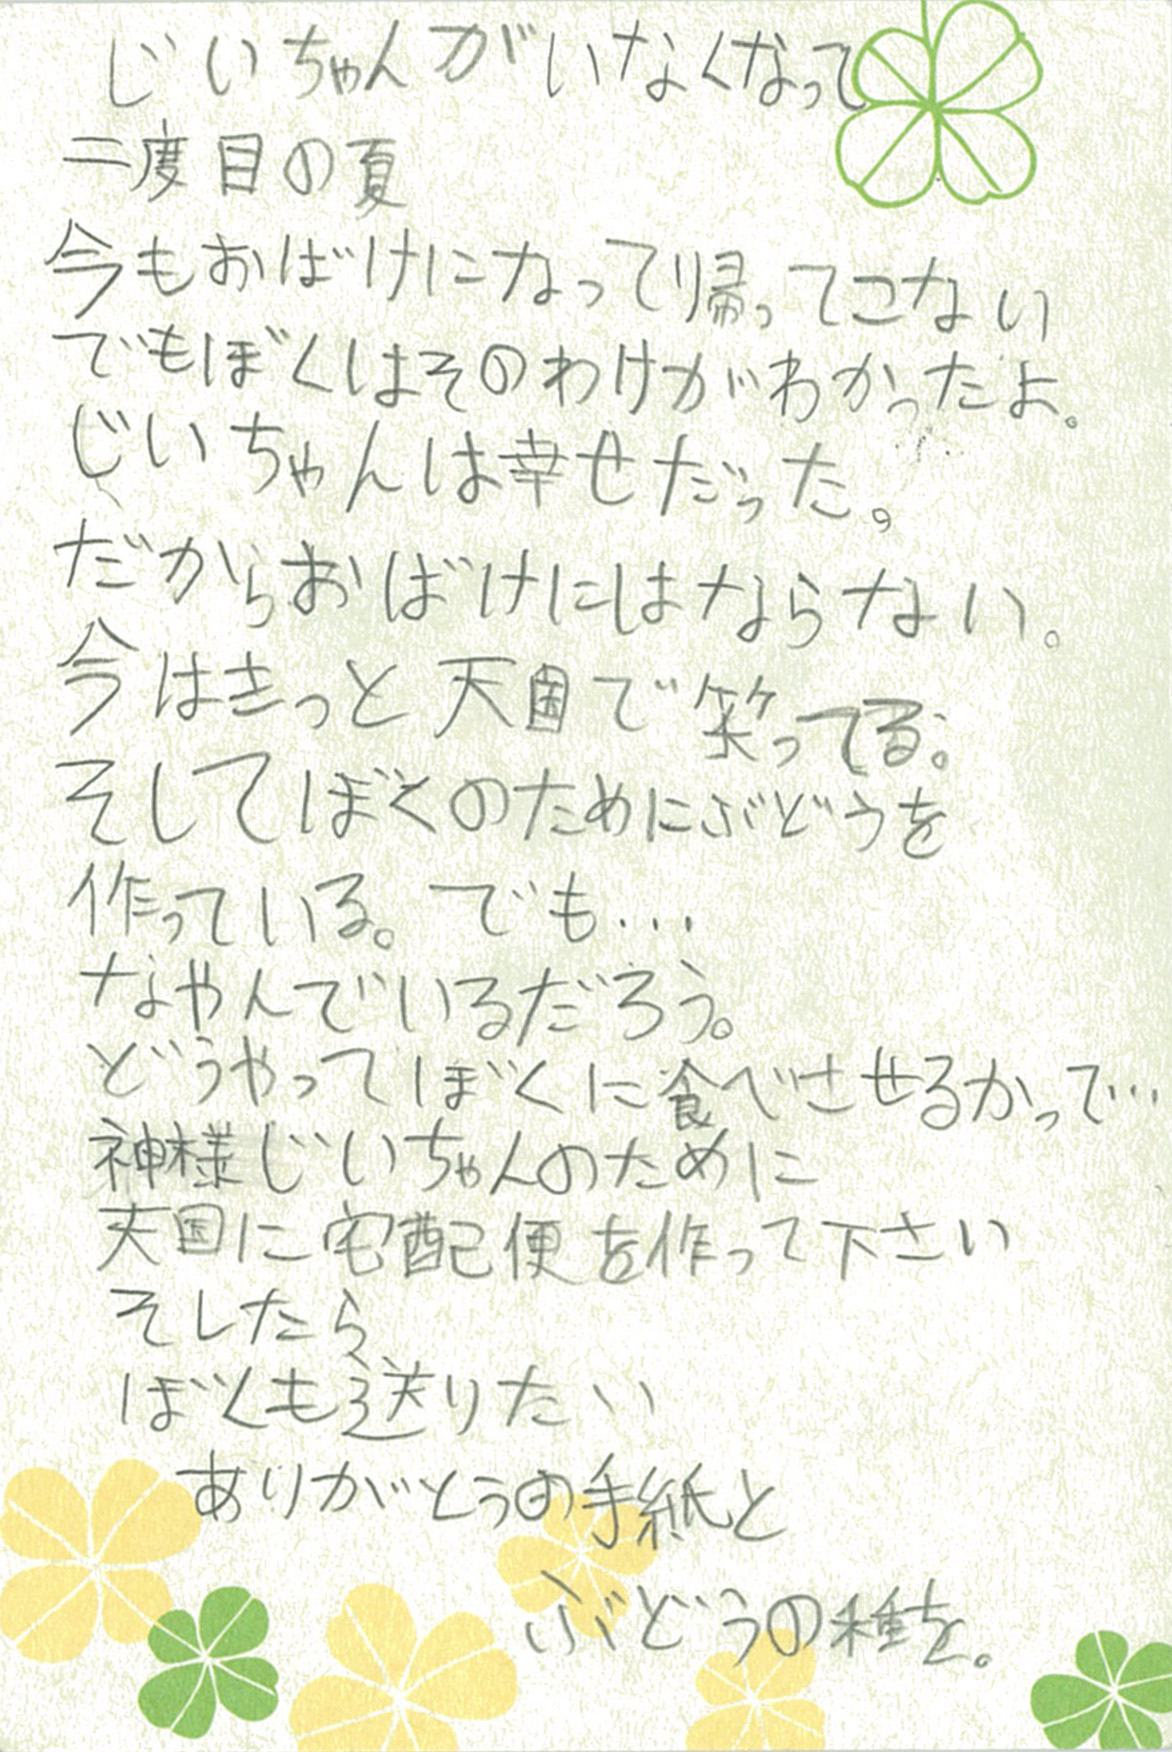 じいちゃんがいなくなって
二度目の夏
今もおばけになって帰ってこない
でもぼくはそのわけがわかったよ。
じいちゃんは幸せだった。
だからおばけにはならない。
今はきっと天国で笑ってる。
そしてぼくのためにぶどうを
作っている。でも…
なやんでいるだろう。
どうやってぼくに食べさせるかって…
神様じいちゃんのために
天国に宅配便を作って下さい
そしたら
ぼくも送りたい
ありがとうの手紙と
ぶどうの種を。